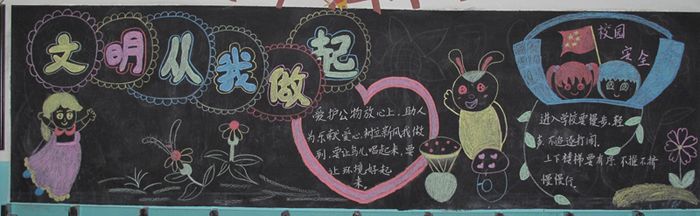 文明从我做起
爱护公物放心上,助人
为乐献爱心,树立新风我做
到,要让鸟儿唱起来,要
让环境好起
来。
校园
安全
进入学校要慢步,轻
声,不追逐打闹。
上下楼梯要有序,不推不挤
慢慢行。